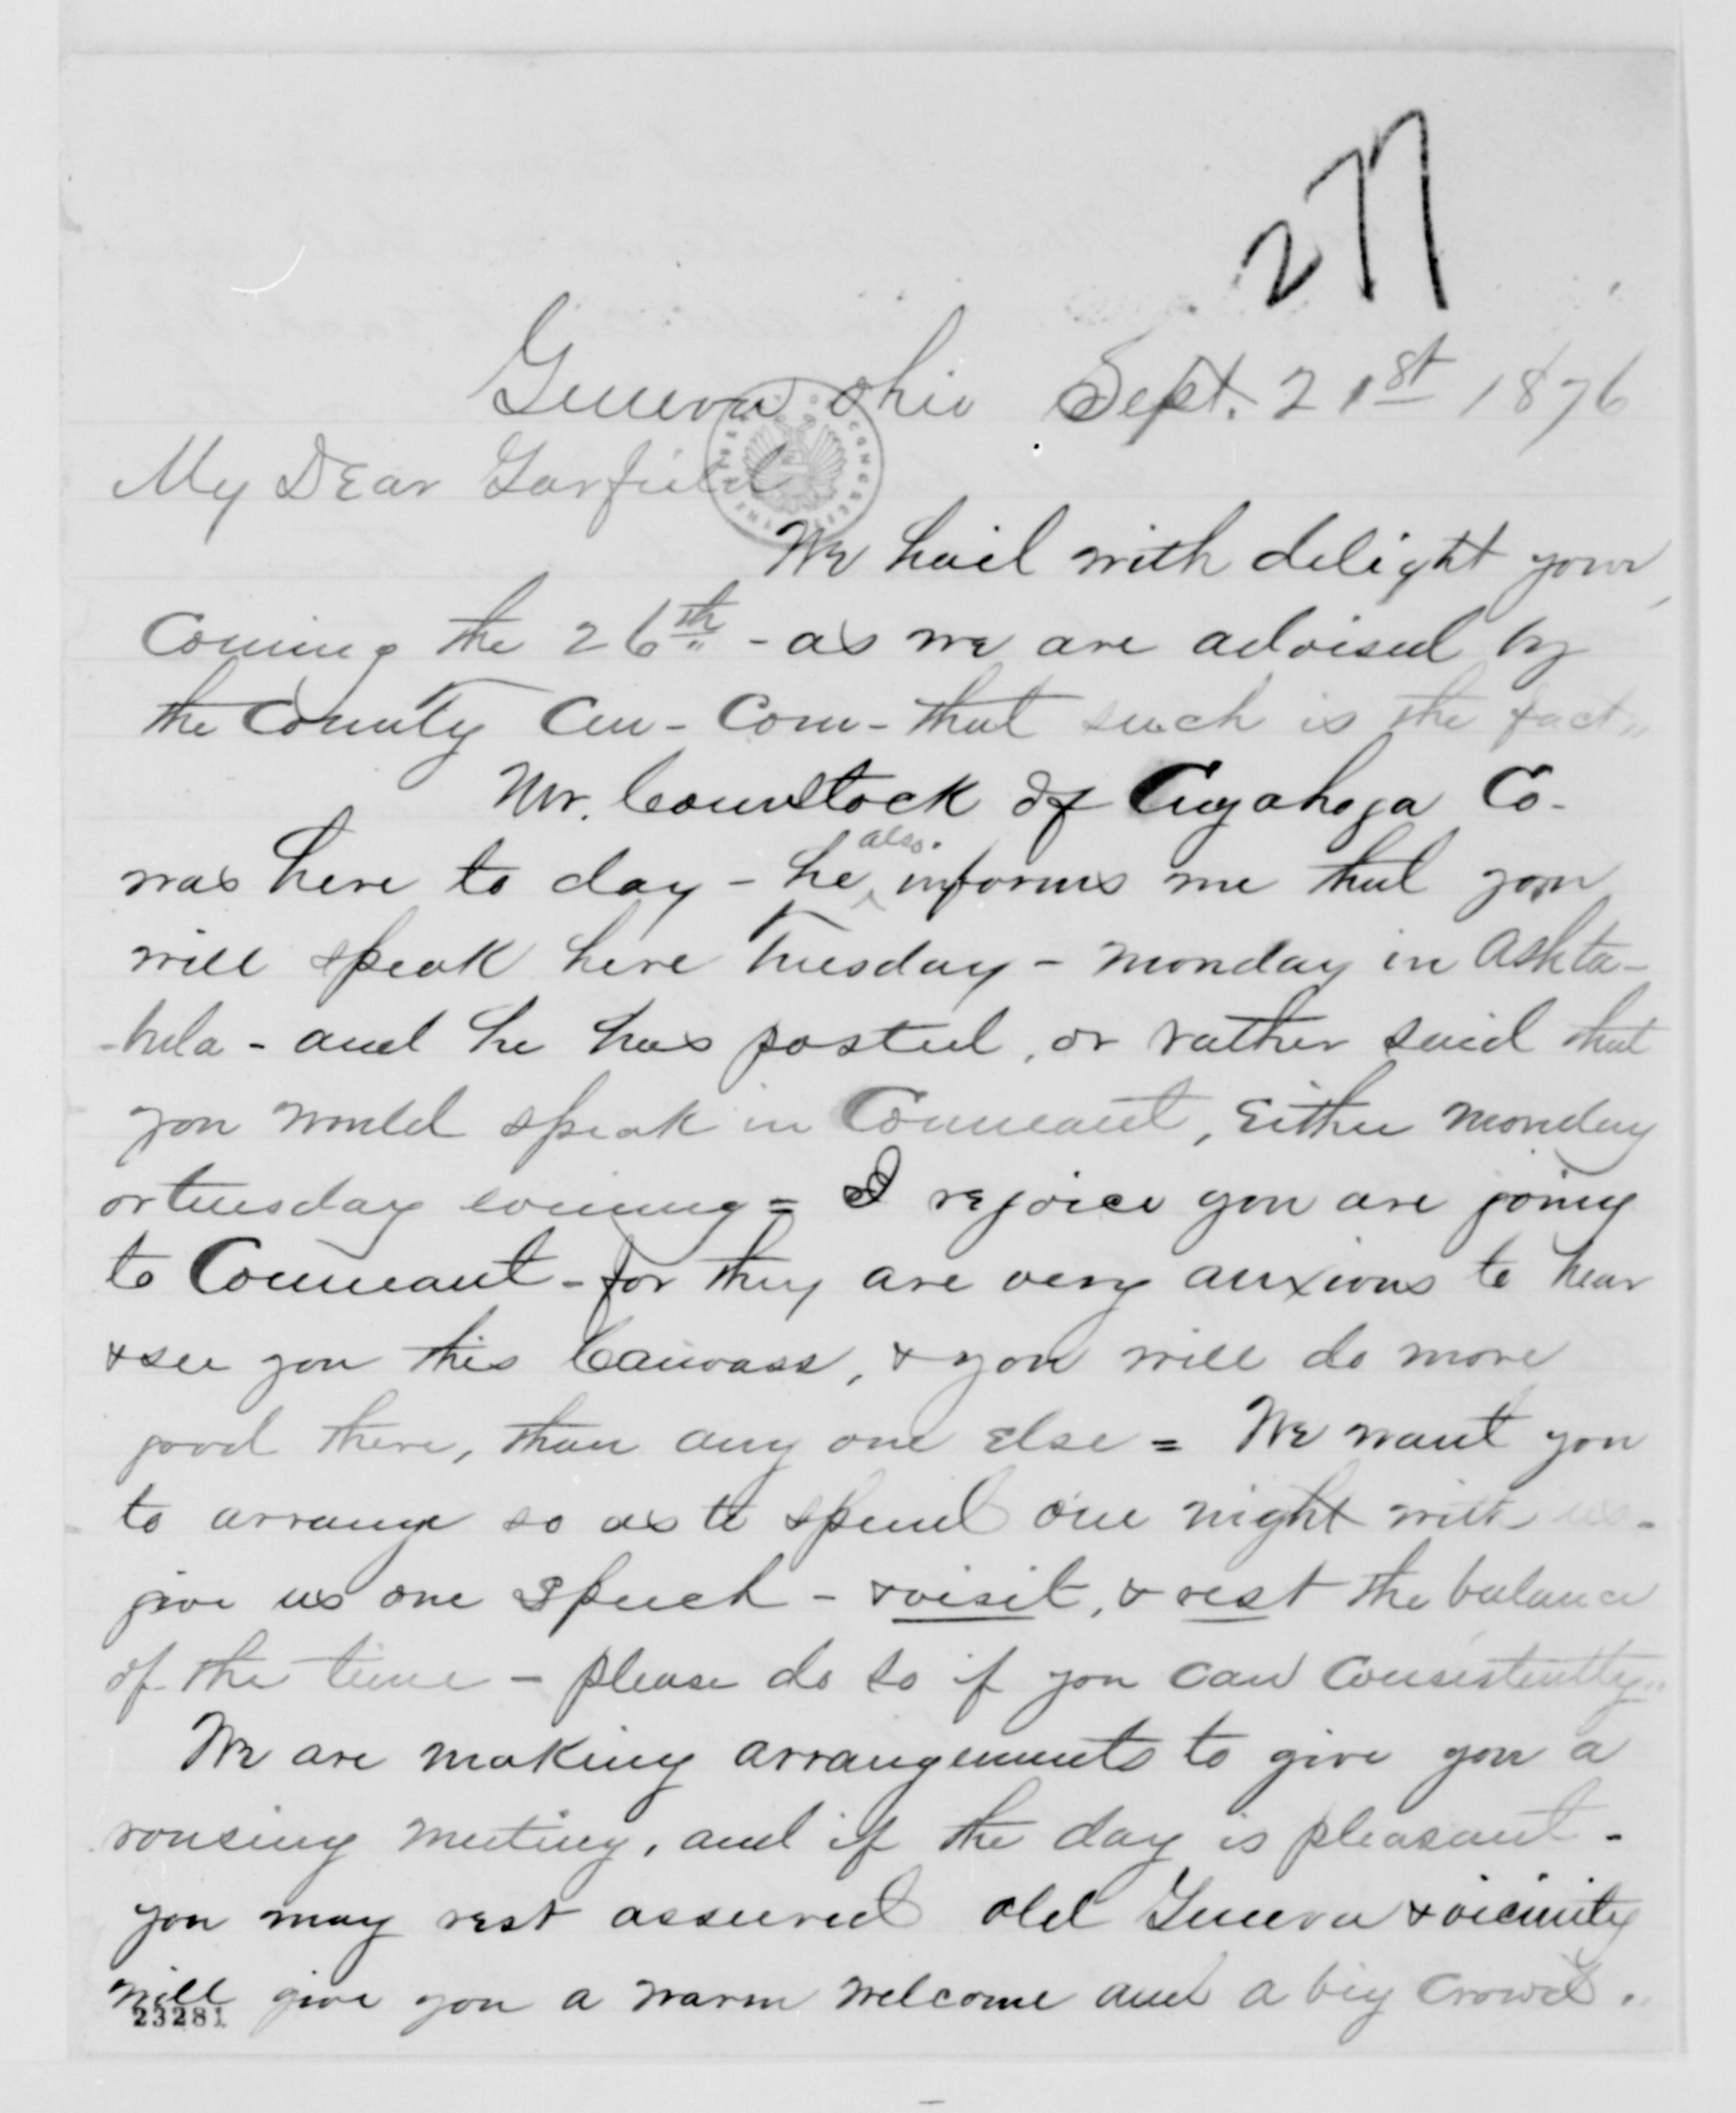 277
Geneva Ohio Sept. 21st 1876
My Dear Garfield
We hail with delight your
Coming the 26th - as we are advised by
the County Cen - Com - that such is the fact
Mr. Comstock of Cuyahoga Co -
was here to day - he also informs me that you
will speak here Tuesday - Monday in Ashta-
-bula - and he has posted, or rather said that
you would speak in Conneaut, Either Monday
or tuesday evening = I rejoice you are going
to Conneaut - for they are very anxious to hear
& see you this Canvass, & you will do more
good there, than any one Else = We want you
to arrange so as to spend one night with us -
give us one Speech - & visit, & rest the balance
of the time - please do so if you can Consistently
We are making arrangements to give you a
rousing meeting, and if the day is pleasant -
you may rest assured old Geneva & vicinity
will give you a warm welcome and a big Crowd.
23281